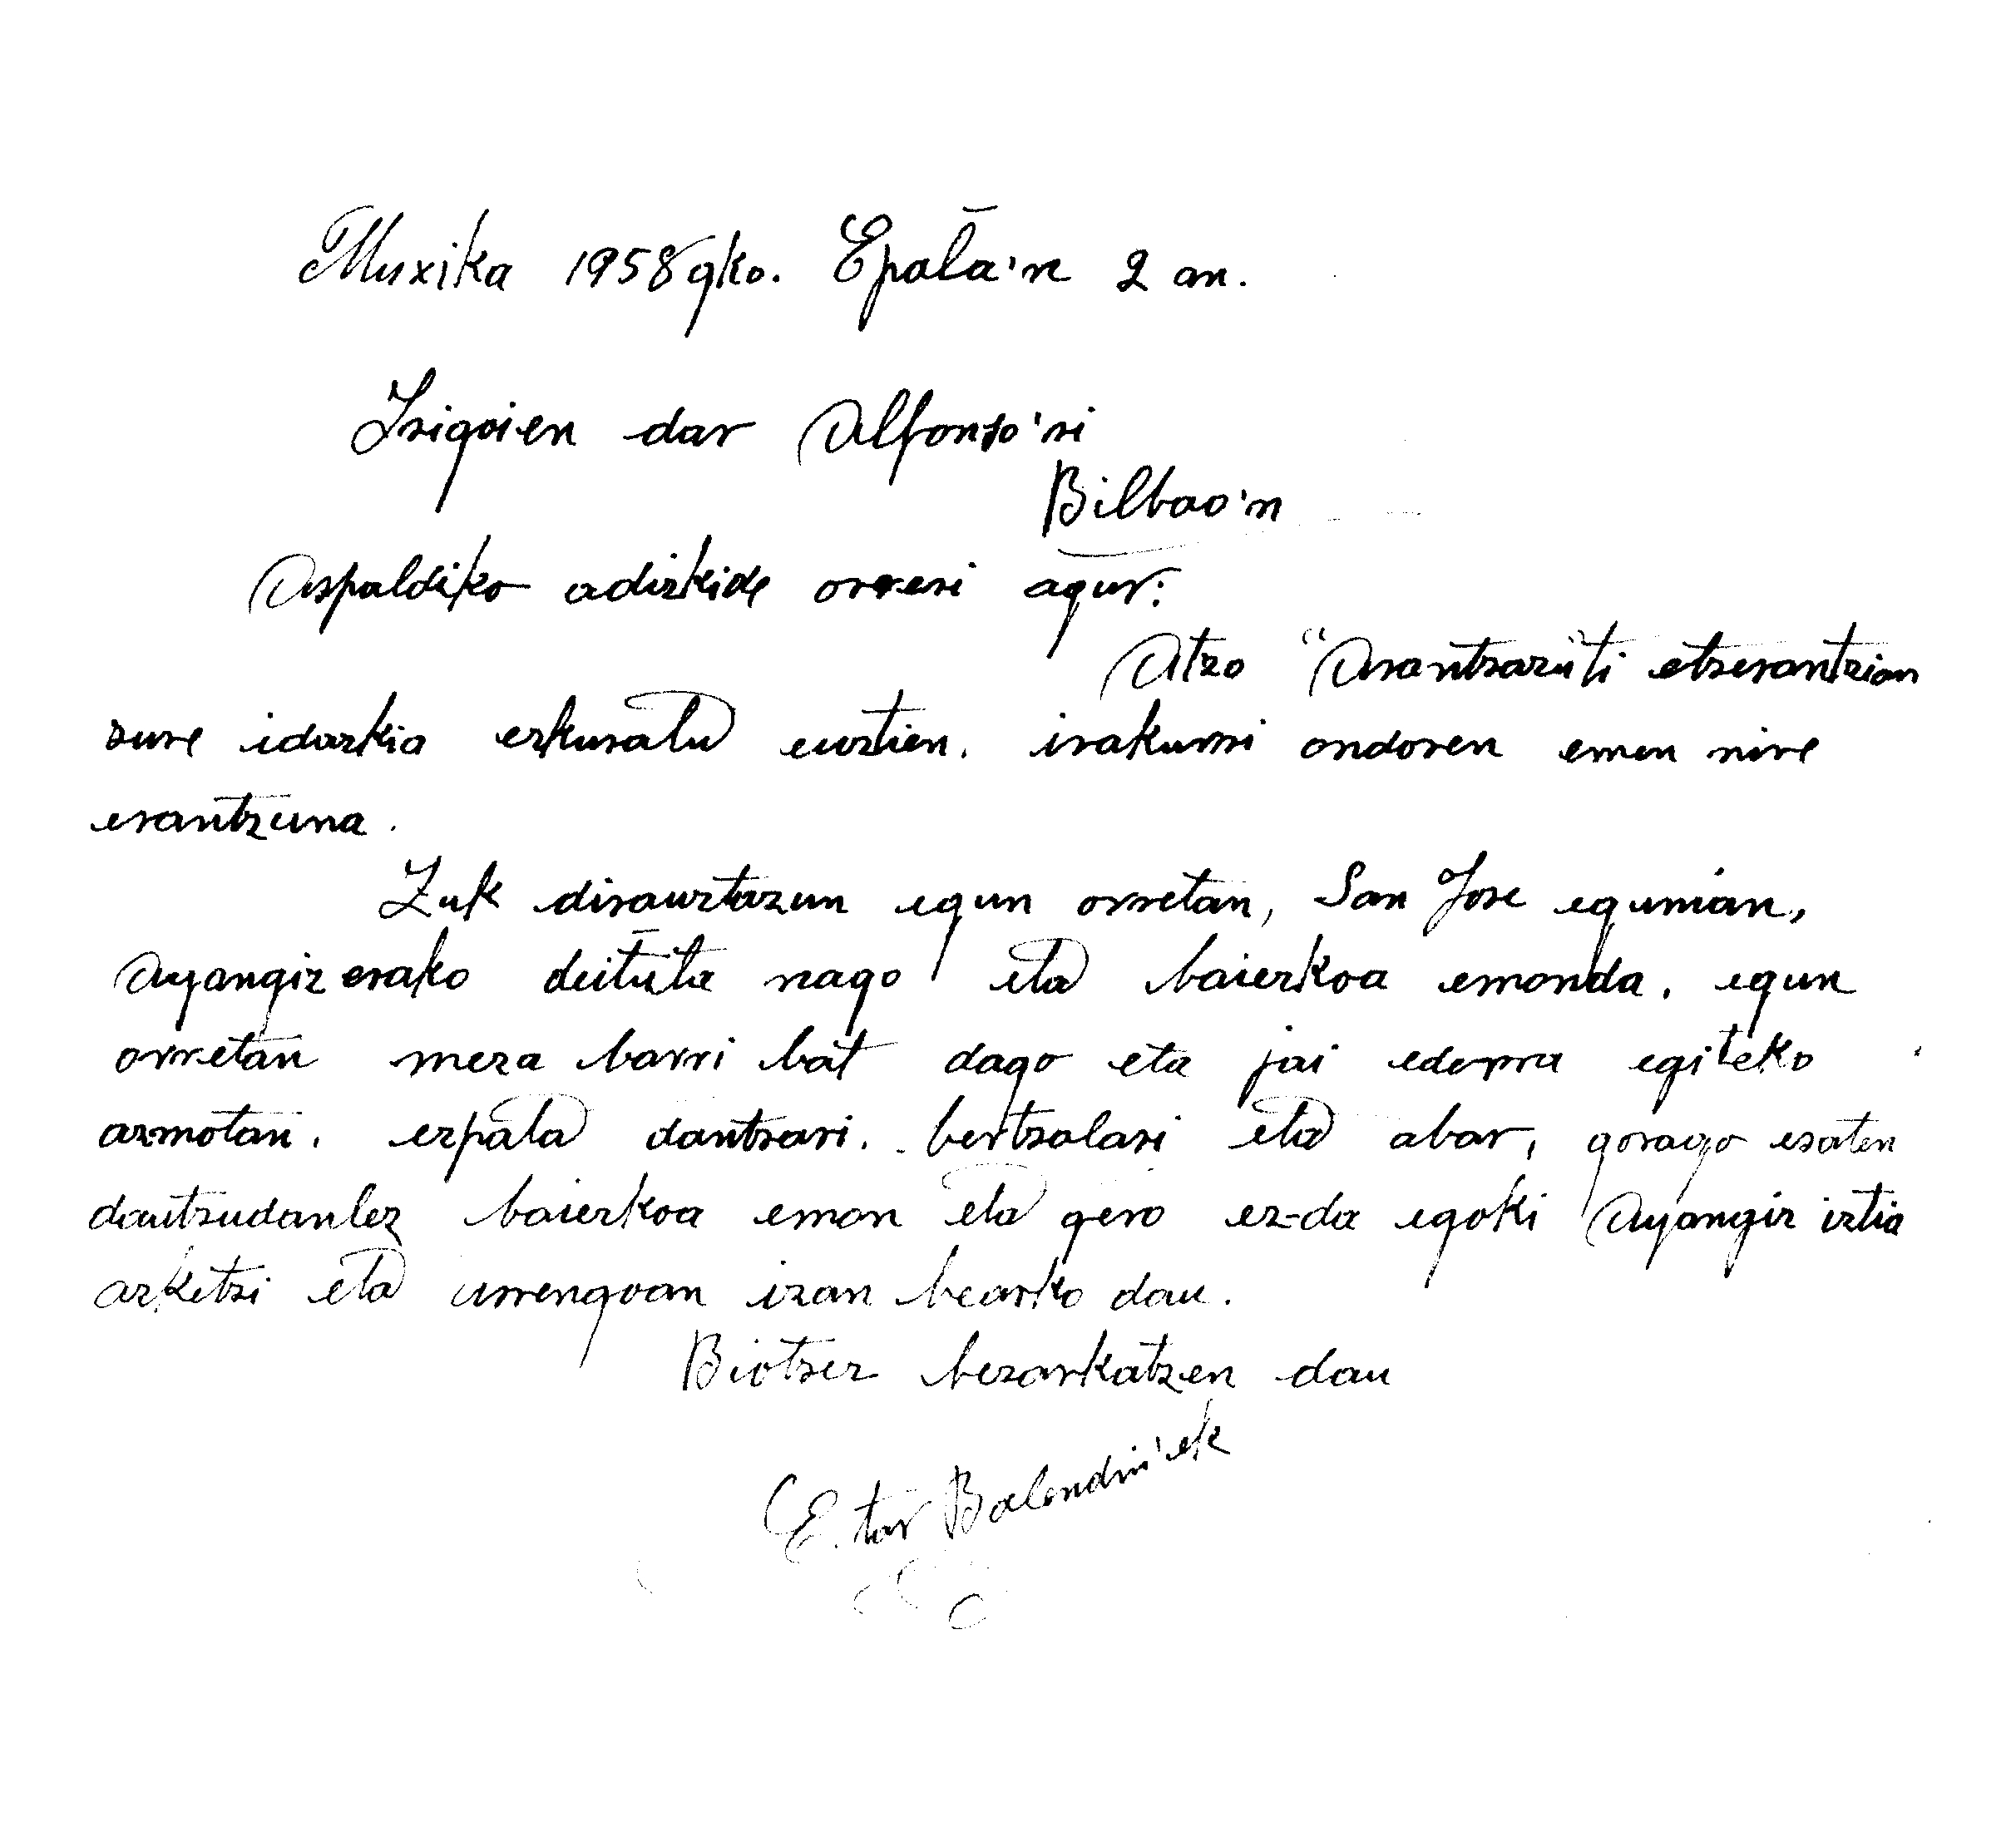 Muxika 1958gko. Epala'n 2 an.
Irigoien dar Alfonso'ri
Bilbao'n
Aspaldiko adizkide orreri agur:
Atzo "Arantzazu"ti etzerantzian
zure idazkia erkuratu eurtien. irakurri ondoren emen nire
erantzuna.
Zuk dirauztazun egun orretan, San Jose egunian,
Ayangiz erako deituta nago eta baierkoa emonda. egun
orretan meza barri bat dago eta jai ederra egiteko
azmotan. ezpata dantzari. bertzolari eta abar, gorago esaten
dautzudanlez baierkoa emon eta gero ez-da egoki Ayangiz iztia
azketsi eta urrengoan izan bearko dau.
Biotzez bezarkatzen dau
E. tar Balendin'ek